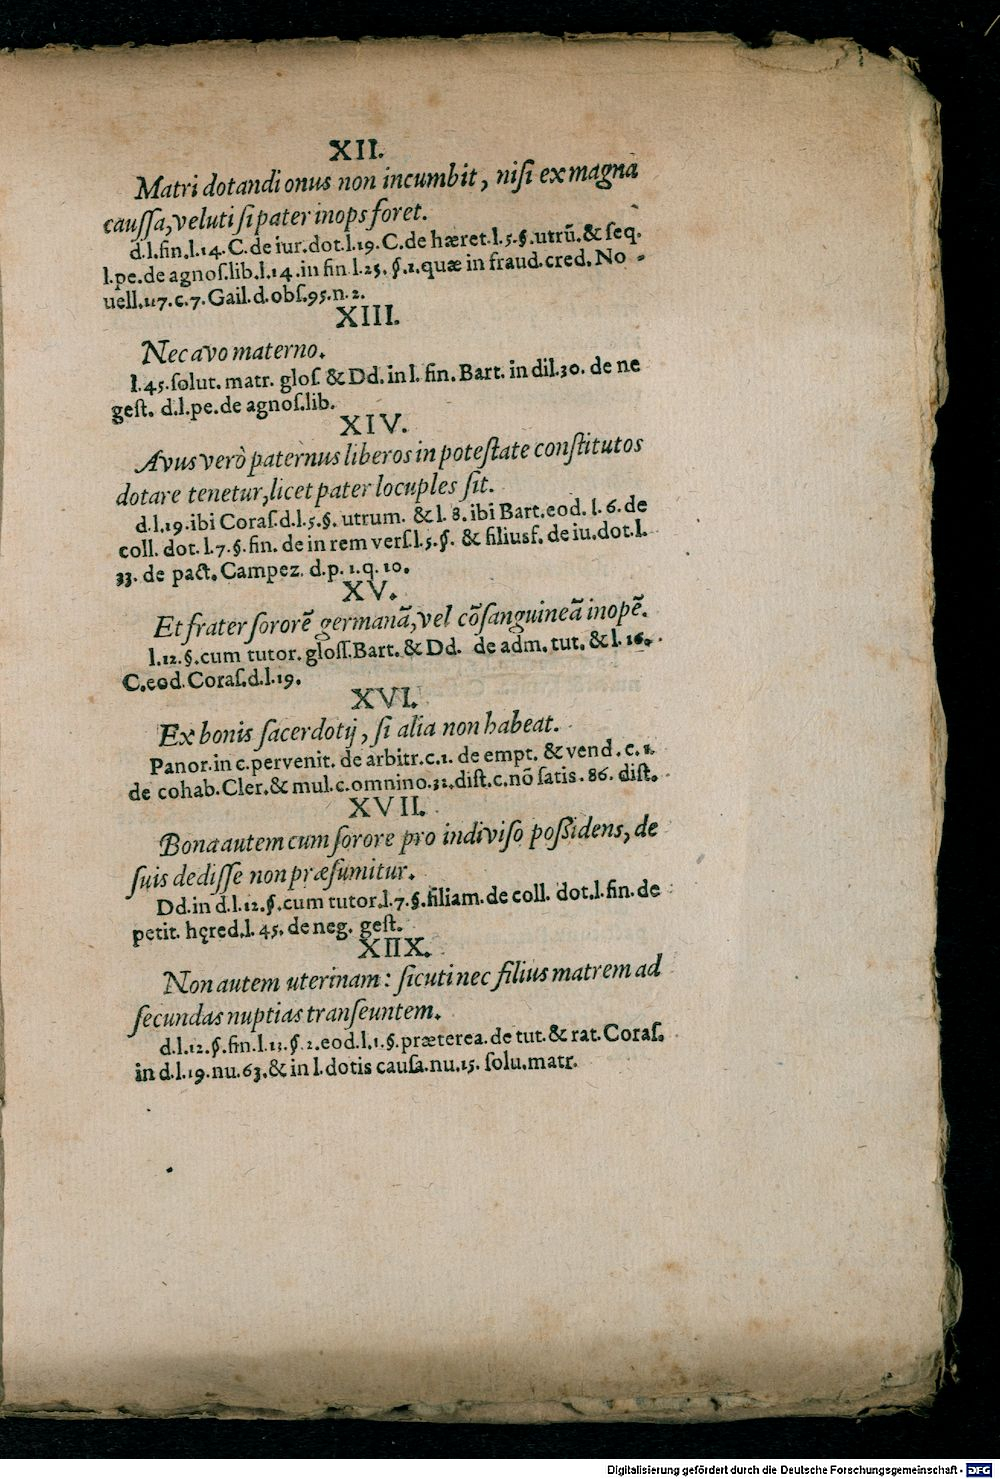 XII.
Matri dotandi onus non incumbit, niſi ex magna
cauſſa, veluti ſi pater inops foret.
d.l.fin.l.14.C.de iur.dot.l.19.C.de hæret.l.5.§.utrũ.& ſeq.
l.pe.de agnoſ.lib.l.14.in fin l.25.§.1.quæ in fraud.cred. No-
uell.117.c.7.Gail.d.obſ.95.n.2.
XIII.
Nec avo materno.
l.45.ſolut. matr. gloſ. & Dd. in l. fin. Bart. in d.l.30. de ne
geſt. d.l.pe.de agnoſ.lib.
XIV.
Avus verò paternus liberos in poteſtate conſtitutos
dotare tenetur, licet pater locuples ſit.
d.l.19.ibi Coraſ.d.l.5.§. utrum. & l. 8. ibi Bart.eod. l. 6. de
coll. dot. l.7.§.fin. de in rem verſ.l.5.§. & filiusf. de iu.dot.l.
33. de pact. Campez. d.p. 1.q. 10.
XV.
Et frater ſororẽ germanã, vel cõſanguineã inopẽ.
l.12.§.cum tutor. gloſſ.Bart. & Dd. de adm. tut. & l. 16.
C.eod.Coraſ.d.l.19.
XVI.
Ex bonis ſacerdotij, ſi alia non habeat.
Panor.in c.pervenit. de arbitr.c.1. de empt. & vend. c. 1.
de cohab.Cler.& mul.c.omnino.31.diſt.c.nõ ſatis. 86. diſt.
XVII.
Bona autem cum ſorore pro indiviſo poſſidens, de
ſuis dediſſe non præſumitur.
Dd.in d.l.12.§.cum tutor.l.7.§.filiam.de coll. dot.l.fin.de
petit. hęred.l. 45. de neg. geſt.
XIIX.
Non autem uterinam: ſicuti nec filius matrem ad
ſecundas nuptias tranſeuntem.
d.l.12.§.fin.l.13.§.2.eod.l.1.§.præterea.de tut.& rat.Coraſ.
in d.l.19.nu.63.& in l.dotis cauſa.nu.15. ſolu.matr.
Digitalisierung gefördert durch die Deutsche Forschungsgemeinschaft - DFG